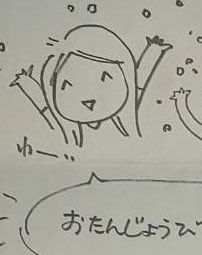 わーい
おたんじょうび